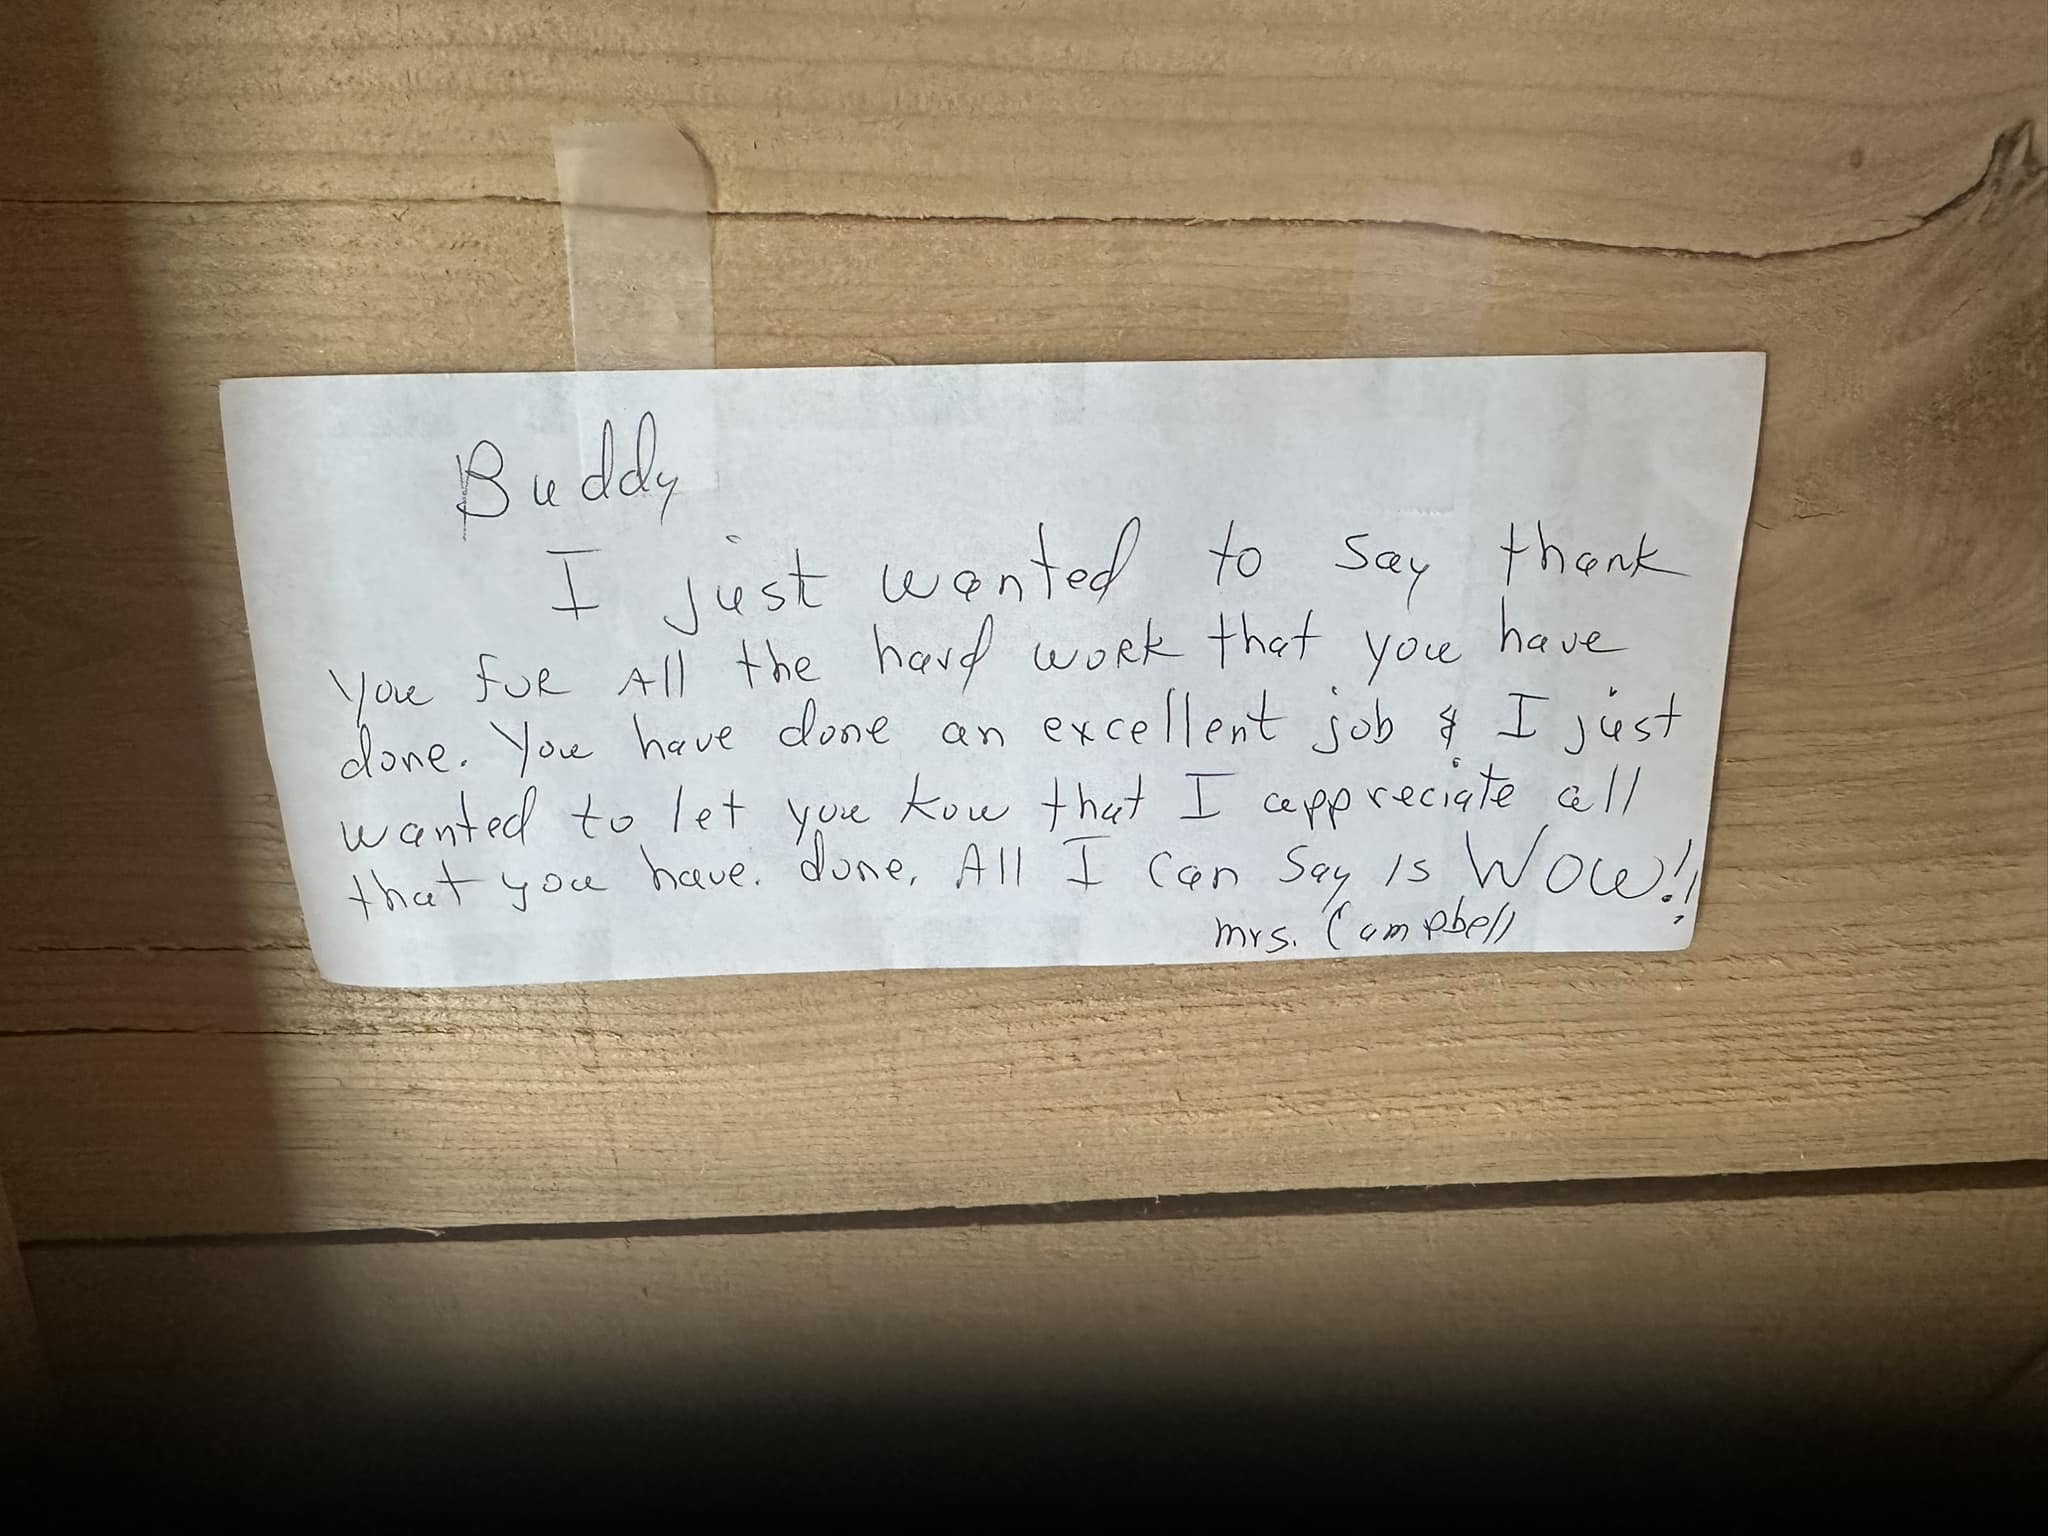 Buddy
I just wanted to say thank
you for All the hard work that you have
done. You have done an excellent job & I just
wanted to let you kow that I appreciate all
that you have. done. All I can say is WOW!!
mrs. Campbell